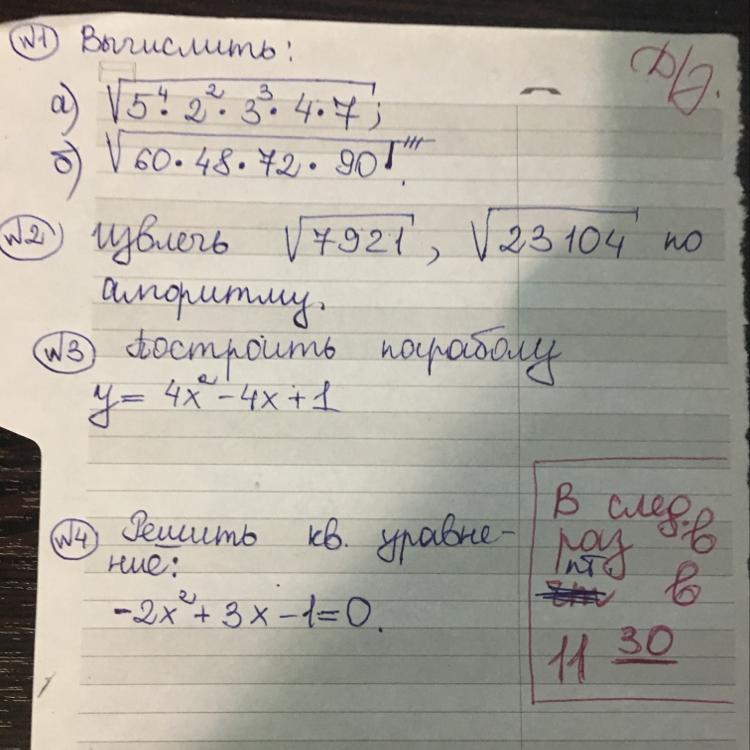 №1 Вычислить:
Д/З.
а) √5⁴·2²·3³·4·7;
б) √60·48·72·90.
№2 Извлечь √7921, √23104 по
алгоритму.
№3 Построить параболу
y = 4x² - 4x + 1
№4 Решить кв. уравне-
ние:
-2x² + 3x - 1 = 0.
В след.
раз в
пт. в
11 30